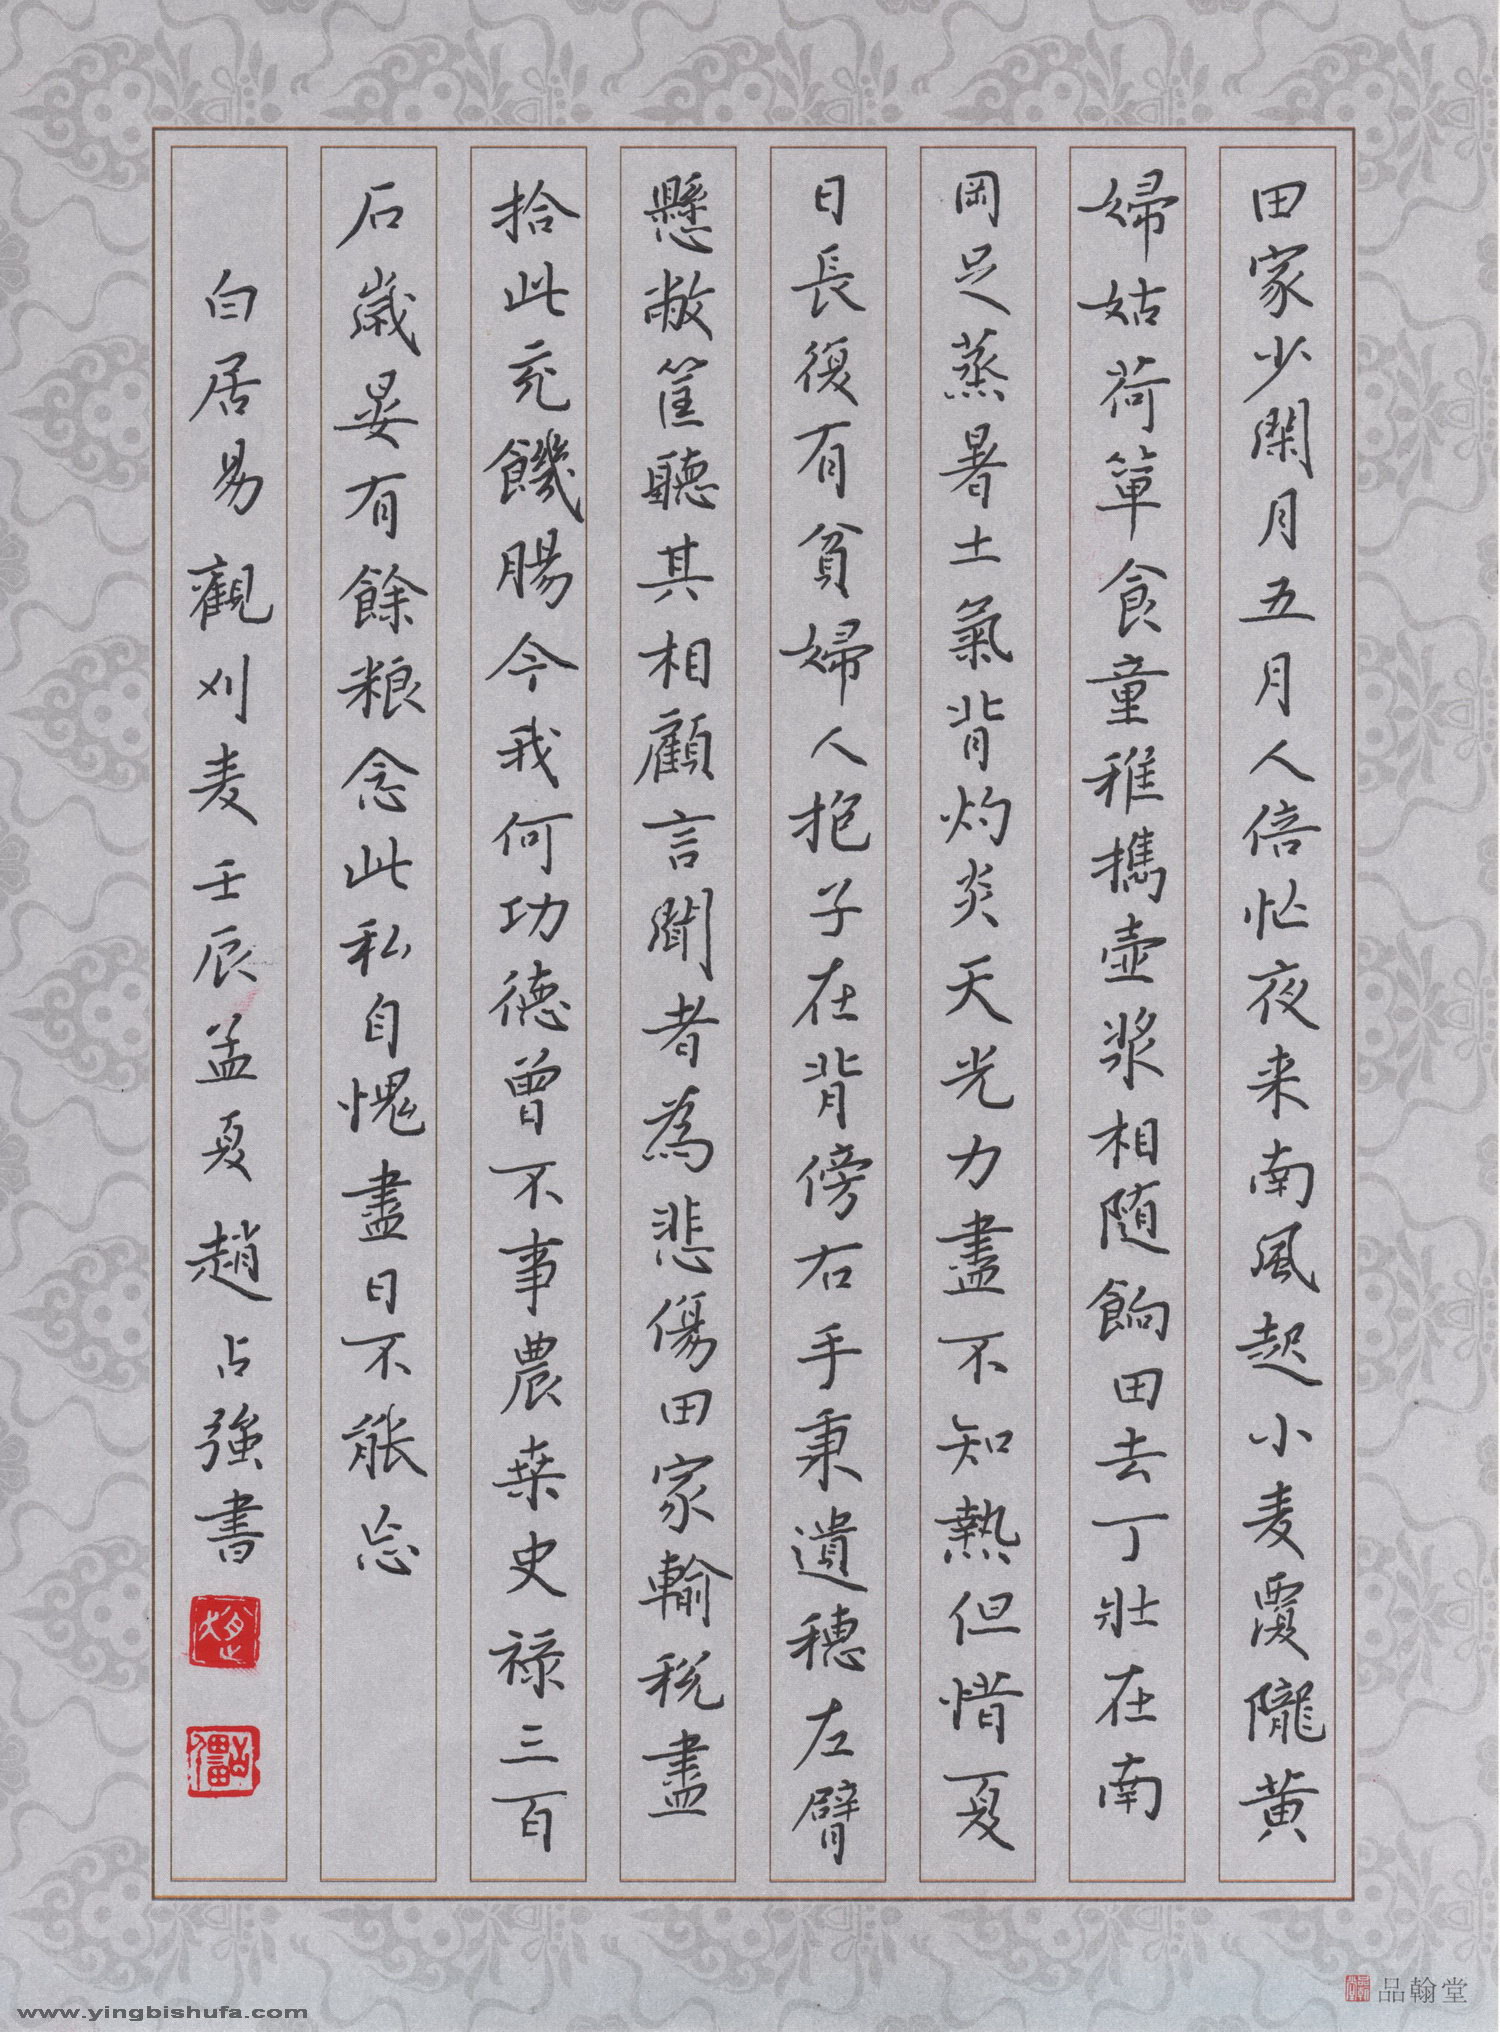 田家少閑月五月人倍忙夜来南風起小麦覆隴黄
婦姑荷簞食童稚攜壺漿相随餉田去丁壯在南
岡足蒸暑土氣背灼炎天光力盡不知熱但惜夏
日長復有貧婦人抱子在背傍右手秉遺穗左臂
懸敝筐聽其相顧言聞者為悲傷田家輸税盡
拾此充饑腸今我何功德曾不事農桒史禄三百
石歲晏有餘粮念此私自愧盡日不能忘
白居易觀刈麦壬辰孟夏趙占強書
品翰堂
www.yingbishufa.com